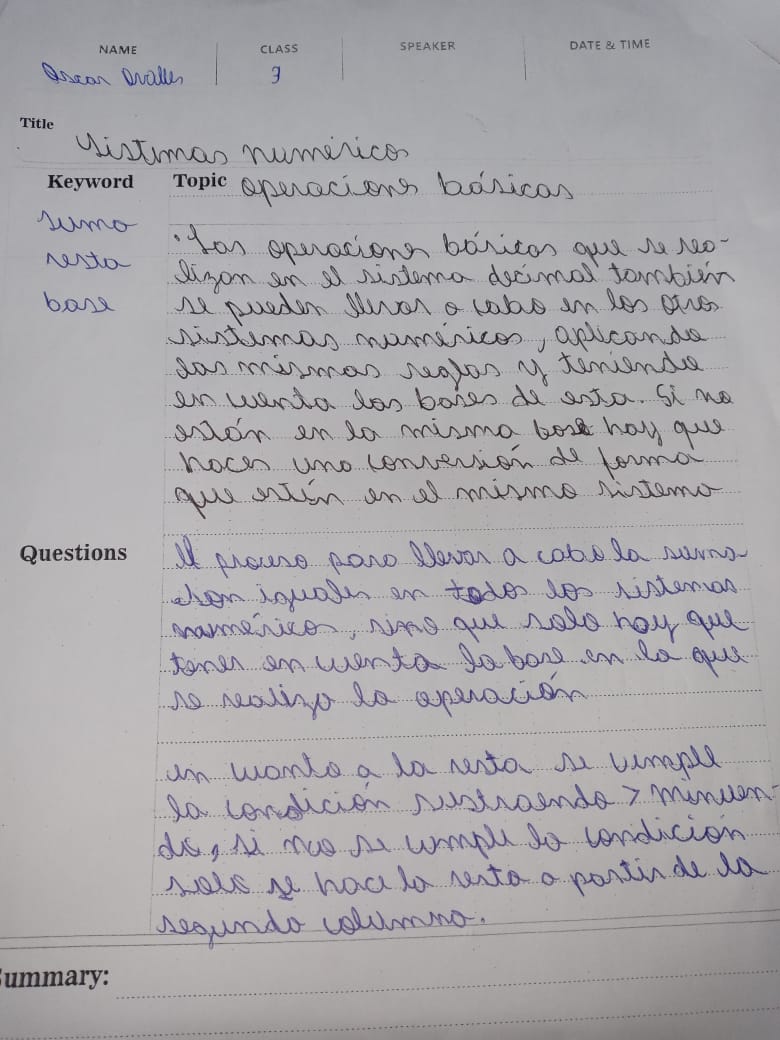 NAME CLASS SPEAKER DATE & TIME
Oscar Ovalles 3
Title
Sistemas numéricos
Keyword Topic operaciones básicas
suma
resta
base
• Las operaciones básicas que se rea-
lizan en el sistema decimal también
se pueden llevar a cabo en los otros
sistemas numéricos, aplicando
las mismas reglas y teniendo
en cuenta las bases de esta. Si no
están en la misma base hay que
hacer una conversión de forma
que estén en el mismo sistema
Questions
El proceso para llevar a cabo la suma
son iguales en todos los sistemas
numéricos, sino que solo hay que
tener en cuenta la base en la que
se realiza la operación
en cuanto a la resta se cumple
la condición sustraendo > minuen-
do, si nos se cumple la condición
solo se hace la resta a partir de la
segunda columna.
Summary: